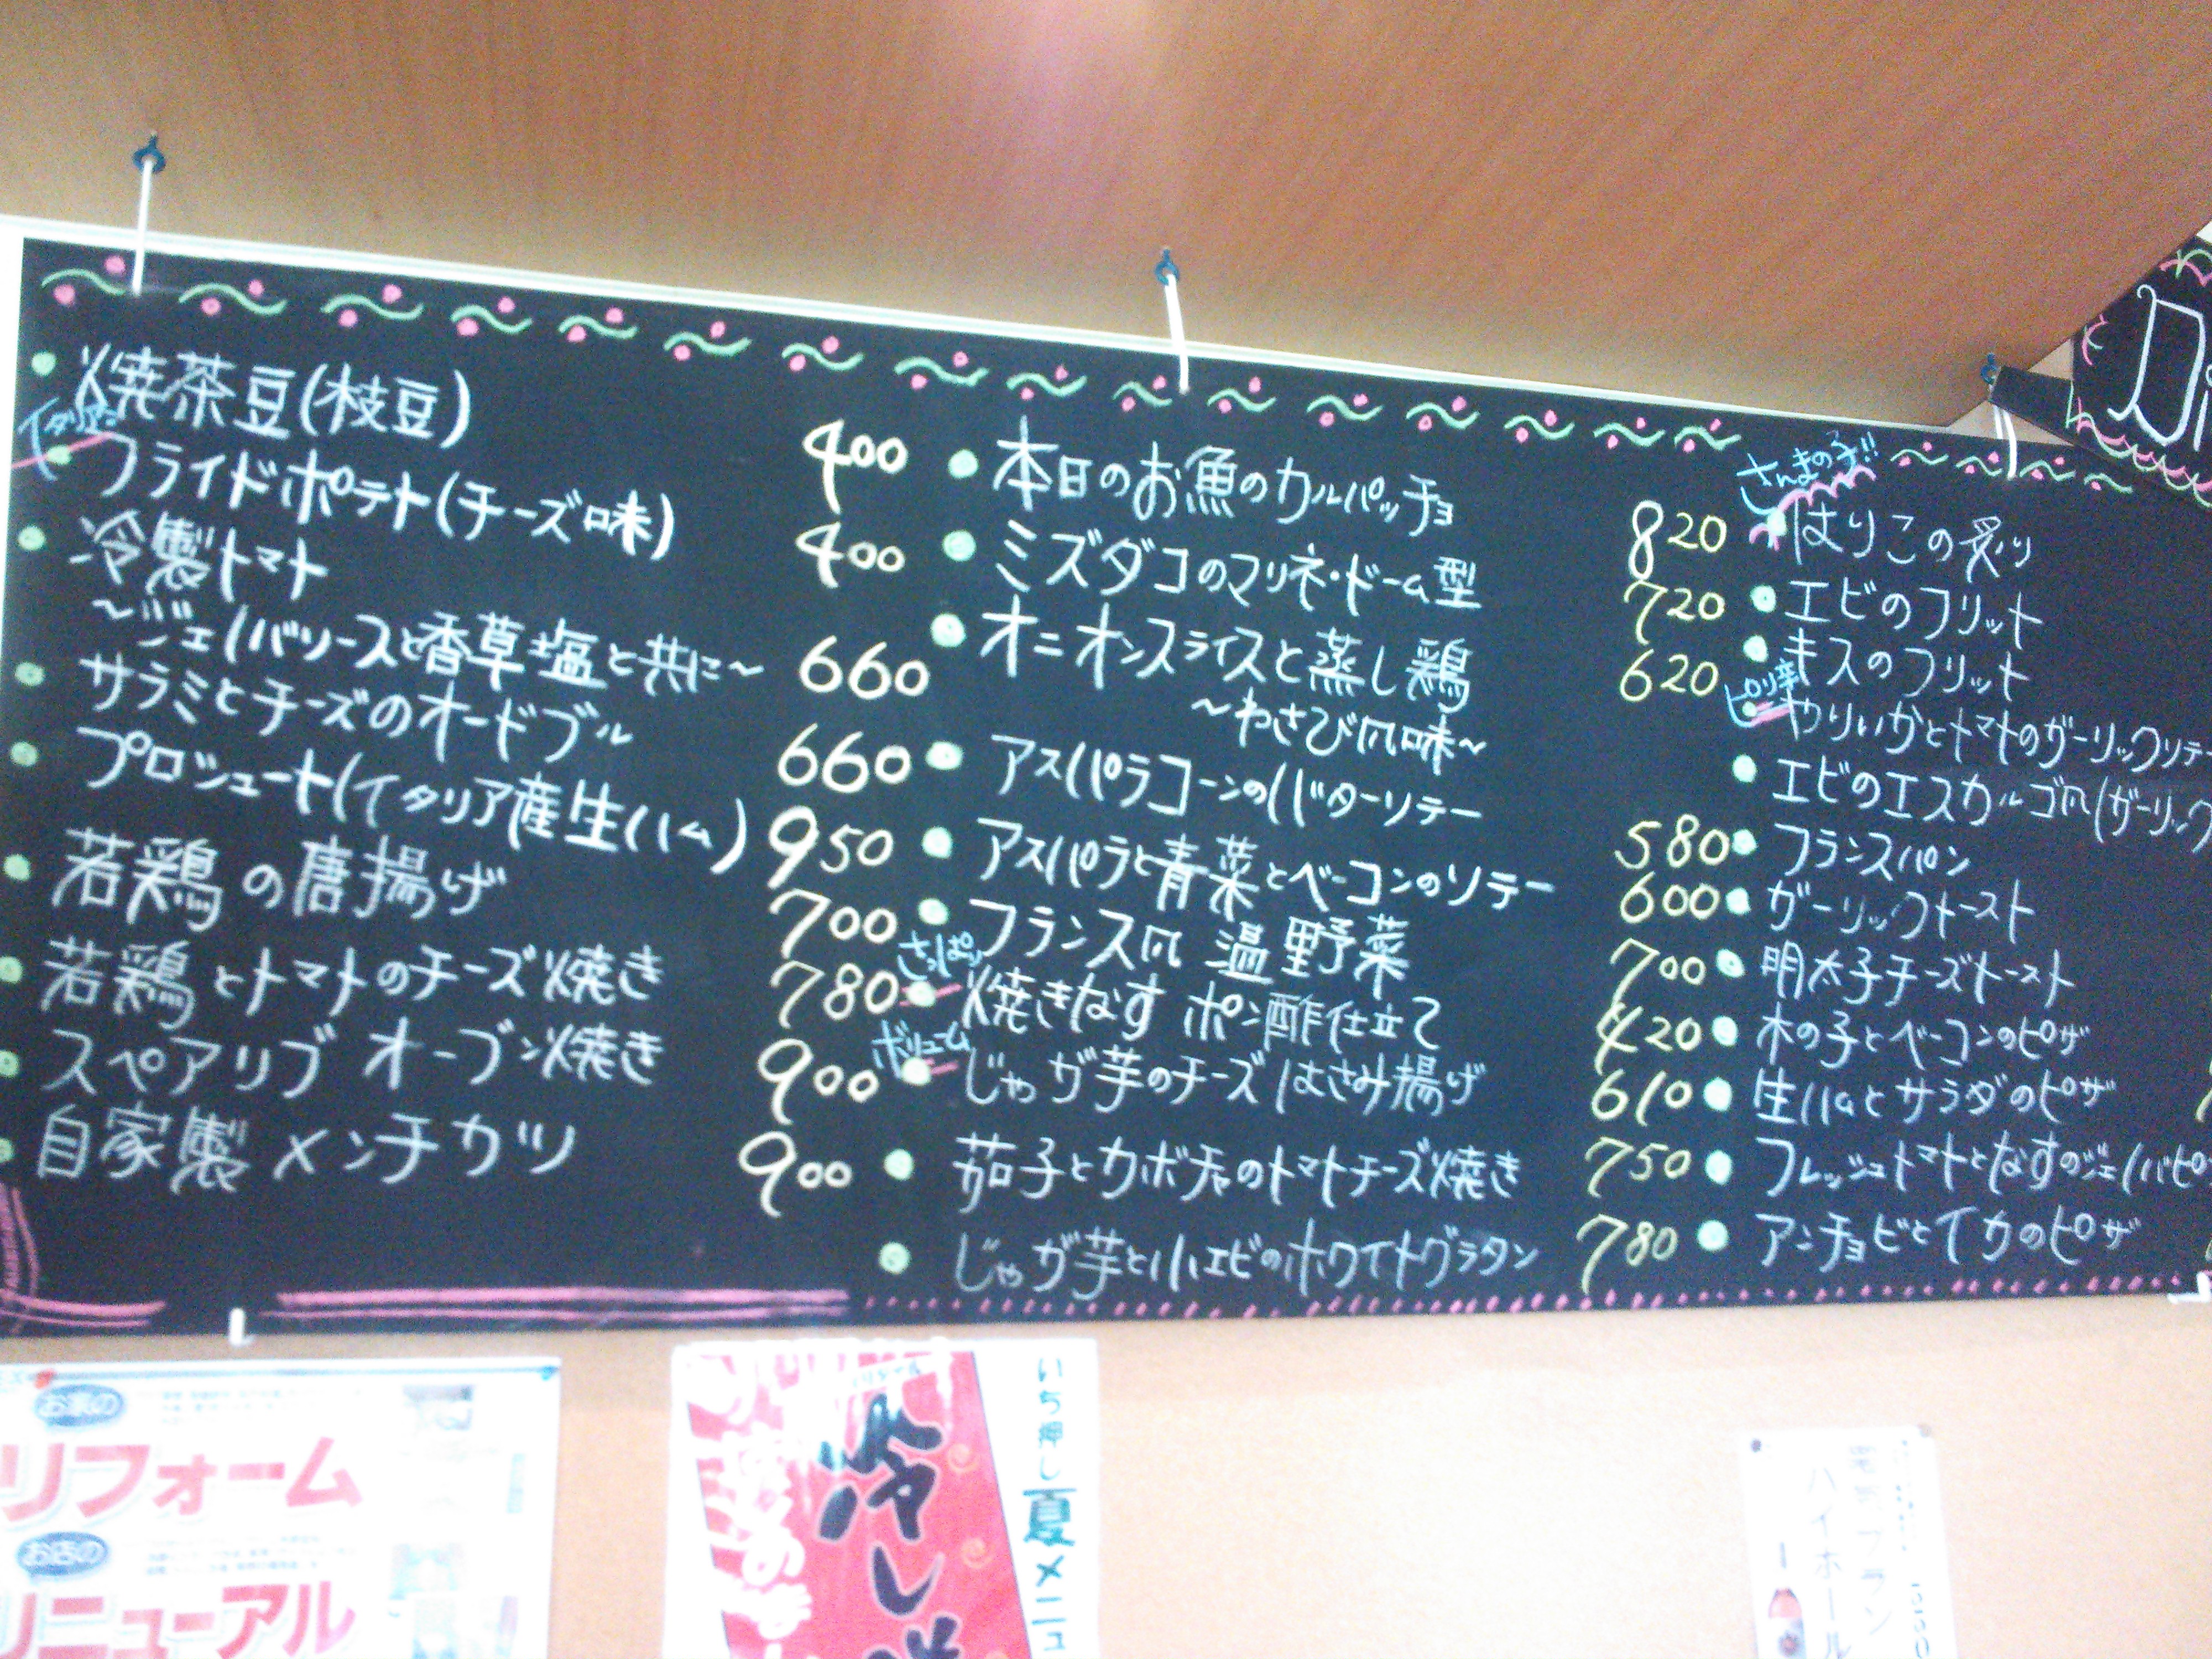 焼茶豆(枝豆) 400
イタリアン
フライドポテト(チーズ味) 400
冷製トマト
～ジェノバソースと香草塩と共に～ 660
サラミとチーズのオードブル 660
プロシュート(イタリア産生ハム) 950
若鶏の唐揚げ 700
若鶏とトマトのチーズ焼き 780
スペアリブ オーブン焼き 900
自家製 メンチカツ 900
本日のお魚のカルパッチョ 820
ミズダコのマリネ・ドーム型 720
オニオンスライスと蒸し鶏 620
～わさび風味～
アスパラコーンのバターソテー 580
アスパラと青菜とベーコンのソテー 600
フランス風 温野菜 700
さっぱり
焼きなす ポン酢仕立て 420
ボリューム
じゃが芋のチーズはさみ揚げ 610
茄子とカボチャのトマトチーズ焼き 750
じゃが芋と小エビのホワイトグラタン 780
さんまの子!!
はりこの炙り
エビのフリット
キスのフリット
ピリ辛
やりいかとトマトのガーリックソテー
エビのエスカルゴ風(ガーリック
フランスパン
ガーリックトースト
明太子チーズトースト
木の子とベーコンのピザ
生ハムとサラダのピザ
フレッシュトマトとなすのジェノバピ
アンチョビとイカのピザ
Di
お家の
リフォーム
お店の
リニューアル
冷し
いち押し夏メニュ
ハイボール